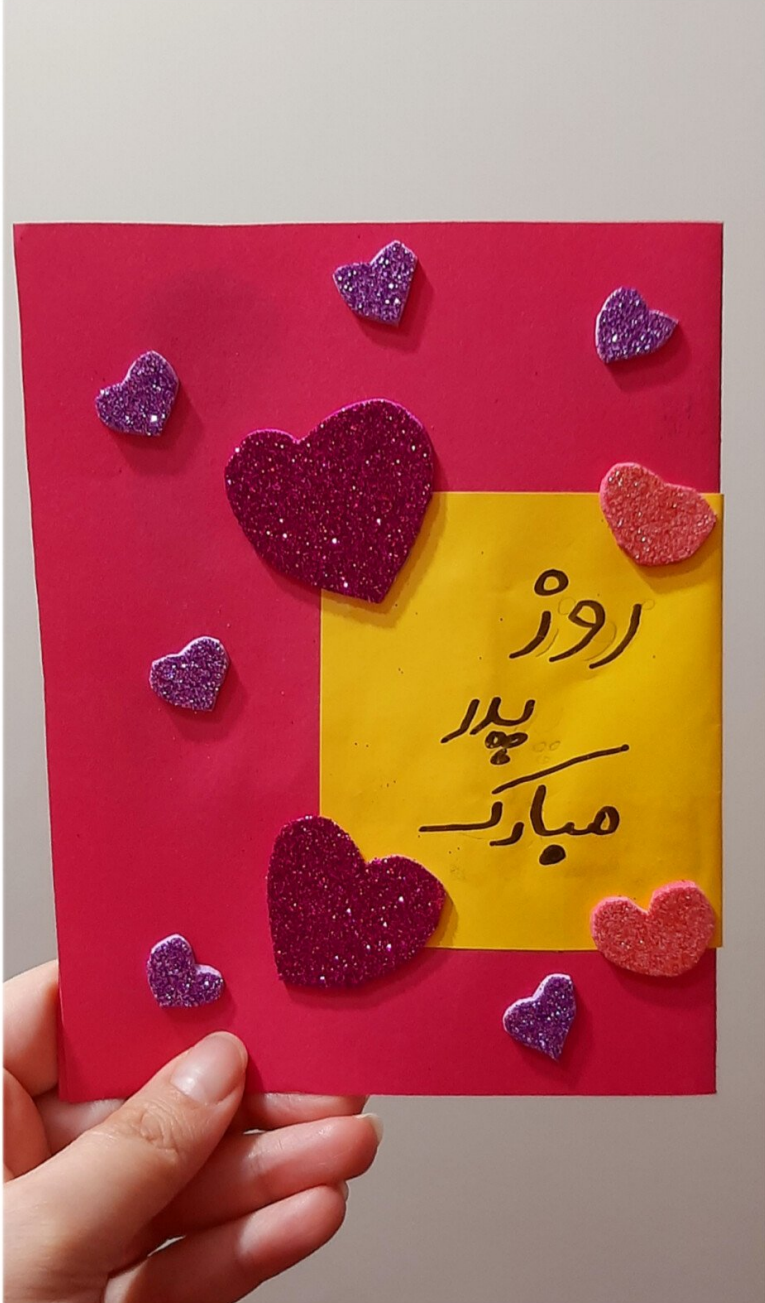 روز
پدر
مبارک